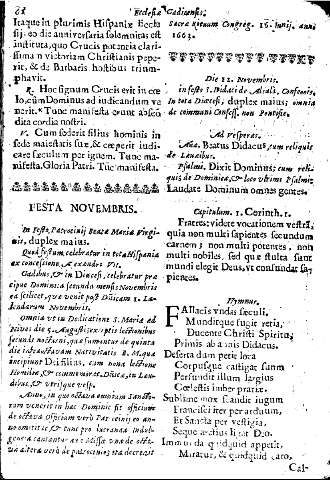 Itaque in plurimis Hispaniæ Eccle
sijs eo die anniversaria solemnitas est
instituta, quo Crucis potencia claris-
sima n victoriam Christiani pepere-
rit, & de Barbaris hostibus trium-
phavit.
R. Hoc signum Crucis erit in cœ-
lo, cum Dominus ad iudicandum ve-
nerit. * Tunc manifesta erunt abscō
dita cordis nostri.
V. Cum sederit filius hominis in
sede maiestatis suæ, & cœperit iudi-
care sæculum per ignem. Tunc ma-
nifesta. Gloria Patri. Tūc manifesta.
FESTA NOVEMBRIS.
In Festo, Patrocinij Beatæ Mariæ Virgi-
nis, duplex maius.
Quod festum celebratur in tota Hispania
ex concessione, Alexandri VII.
Gadibus, & in Diœcesi, celebratur præ
cipue Dominica secunda mensis Novembris
ea scilicet, quæ venit post Diem 1. Ca-
lendarum Novembris.
Omnia vt in Dedicatione S. Mariæ ad
Nives die 5. Augusti: exceptis lectionibus
secundi nocturni, quæ sumantur de quinta
die infraoctavam Nativitatis B. M. quæ
incipiunt Dei filius, cum nona lectione
Homiliæ, & commemorat. Diœces, in Lau
dibus, & vtrisque vesp.
Advc, in quo octava omnium Sancto-
rum venerit in hac Dominica sit officium
de octava
Ecclesiæ Gaditensis,
Sacra Rituum Congreg. 16. Iunij, anni
1663.
Die 12. Novembris.
in festo S. Didaci de Alcalà, Confessoris,
In tota Diœcesi, duplex maius; omnia
de communi Confess. non Pontific.
Ad Vesperas.
Aña. Beatus Didacus, cum reliquis
de Laudibus.
Psalmi, Dixit Dominus; cum reli-
quis de Dominica, & loco vltimi Psalmi;
Laudate Dominum omnes gentes.
Capitulum. 1. Corinth. 1.
Fratres; videte vocationem vestrā,
quia non multi sapientes secundum
carnem; non multi potentes, non
multi nobiles, sed quæ stulta sunt
mundi elegit Deus, vt confundat sa-
pientes.
Hymnus.
Fallacis vndas sæculi,
Mundique fugit retia,
Ducente Christi Spiritu,
Primis ab annis Didacus.
Deserta dum petit loca
Corpusque castigat suum
Perfundit illum largius
Cœlestis imber gratiæ.
Sublime mox scandit iugum
Francisci iter per arduum,
Et Sancta per vestigia,
Seque arctius ligat Deo.
Immunda quidquid appetit,
Miratur, & quidquid caro,
Cal-